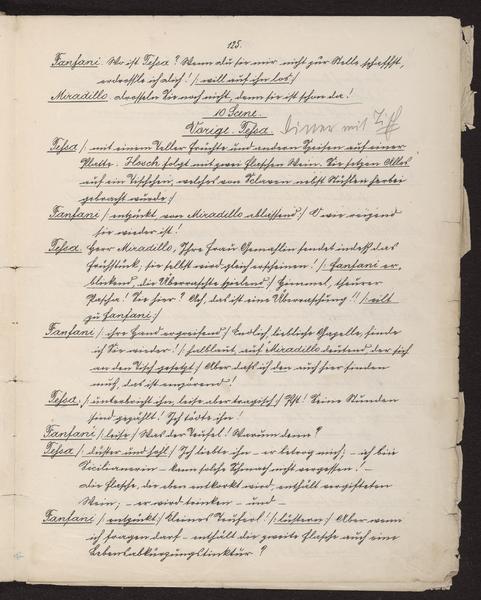 125.
Fanfani. Wo ist Tessa? Wenn du sie mir nicht zur Stelle schaffst,
erdrossle ich dich! /: will auf ihn los :/
Miradillo. drosseln Sie noch nicht, denn sie ist schon da!
10 Scene.
Vorige. Tessa.
Tessa /: mit einem Teller Früchte und anderen Speisen auf einer
Platte. Hosch folgt mit zwei Flaschen Wein. Sie setzen Alles
auf ein Tischchen, welches von Sclaven nebst Stühlen herbei
gebracht wurde :/
Fanfani /: entzückt, von Miradillo ablassend :/ O wie reizend
sie wieder ist!
Tessa. Herr Miradillo, Ihre Frau Gemahlin sendet indeß das
Frühstück, sie selbst wird gleich erscheinen! /: Fanfani er,
blickend, die Überraschte spielend :/ Himmel, theurer
Pascha! Sie hier? Ach, das ist eine Überraschung!! /: eilt
zu Fanfani :/
Fanfani /: ihre Hand ergreifend :/ Endlich liebliche Gazelle, finde
ich Sie wieder! /: halblaut auf Miradillo deutend, der sich
an den Tisch gesetzt :/ Aber dass ich den auch hier finden
muß, das ist empörend!
Tessa, /: unterbricht ihn, leise aber tragisch :/ Pst! Seine Stunden
sind gezählt! Ich tödte ihn!
Fanfani /: leise :/ Was der Teufel! Warum denn?
Tessa /: düster und hohl :/ Ich liebte ihn – er betrog mich; – ich bin
Sicilianerin – kann solche Schmach nicht vergessen! –
die Flasche, die eben entkorkt wird, enthält vergifteten
Wein; – er wird trinken – und –
Fanfani /: entzückt :/ kleines Teuferl! /: lüstern :/ Aber wenn
ich fragen darf – enthält die zweite Flasche auch eine
Lebensabkürzungstinktur?